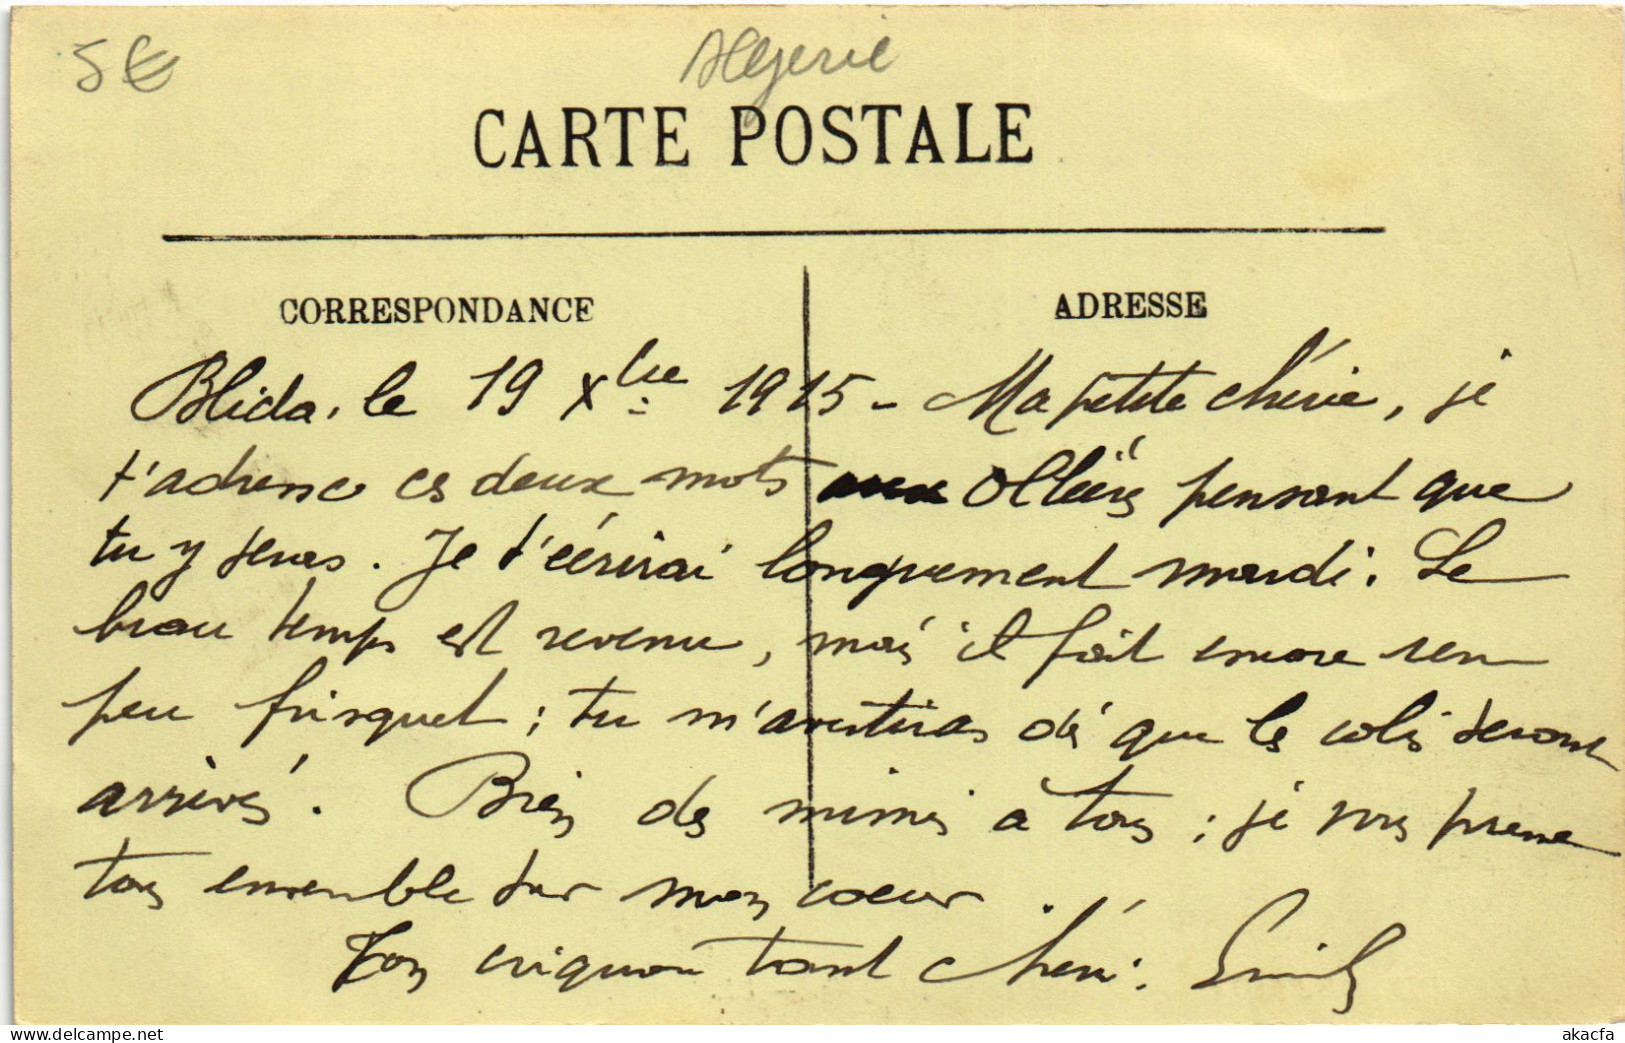 5€
Algerie
CARTE POSTALE
CORRESPONDANCE
ADRESSE
Blida, le 19 Xbre 1915 - Ma petite chérie, je
t'adresse ces deux mots aux Ollières pensant que
tu y seras. Je t'écrirai longuement mardi. Le
beau temps est revenu, mais il fait encore un
peu frisquet ; tu m'avertiras dès que les colis seront
arrivés. Bien des mimis à tous ; je vous presse
tous ensemble sur mon coeur.
Ton tant chéri. Emile
akacfa